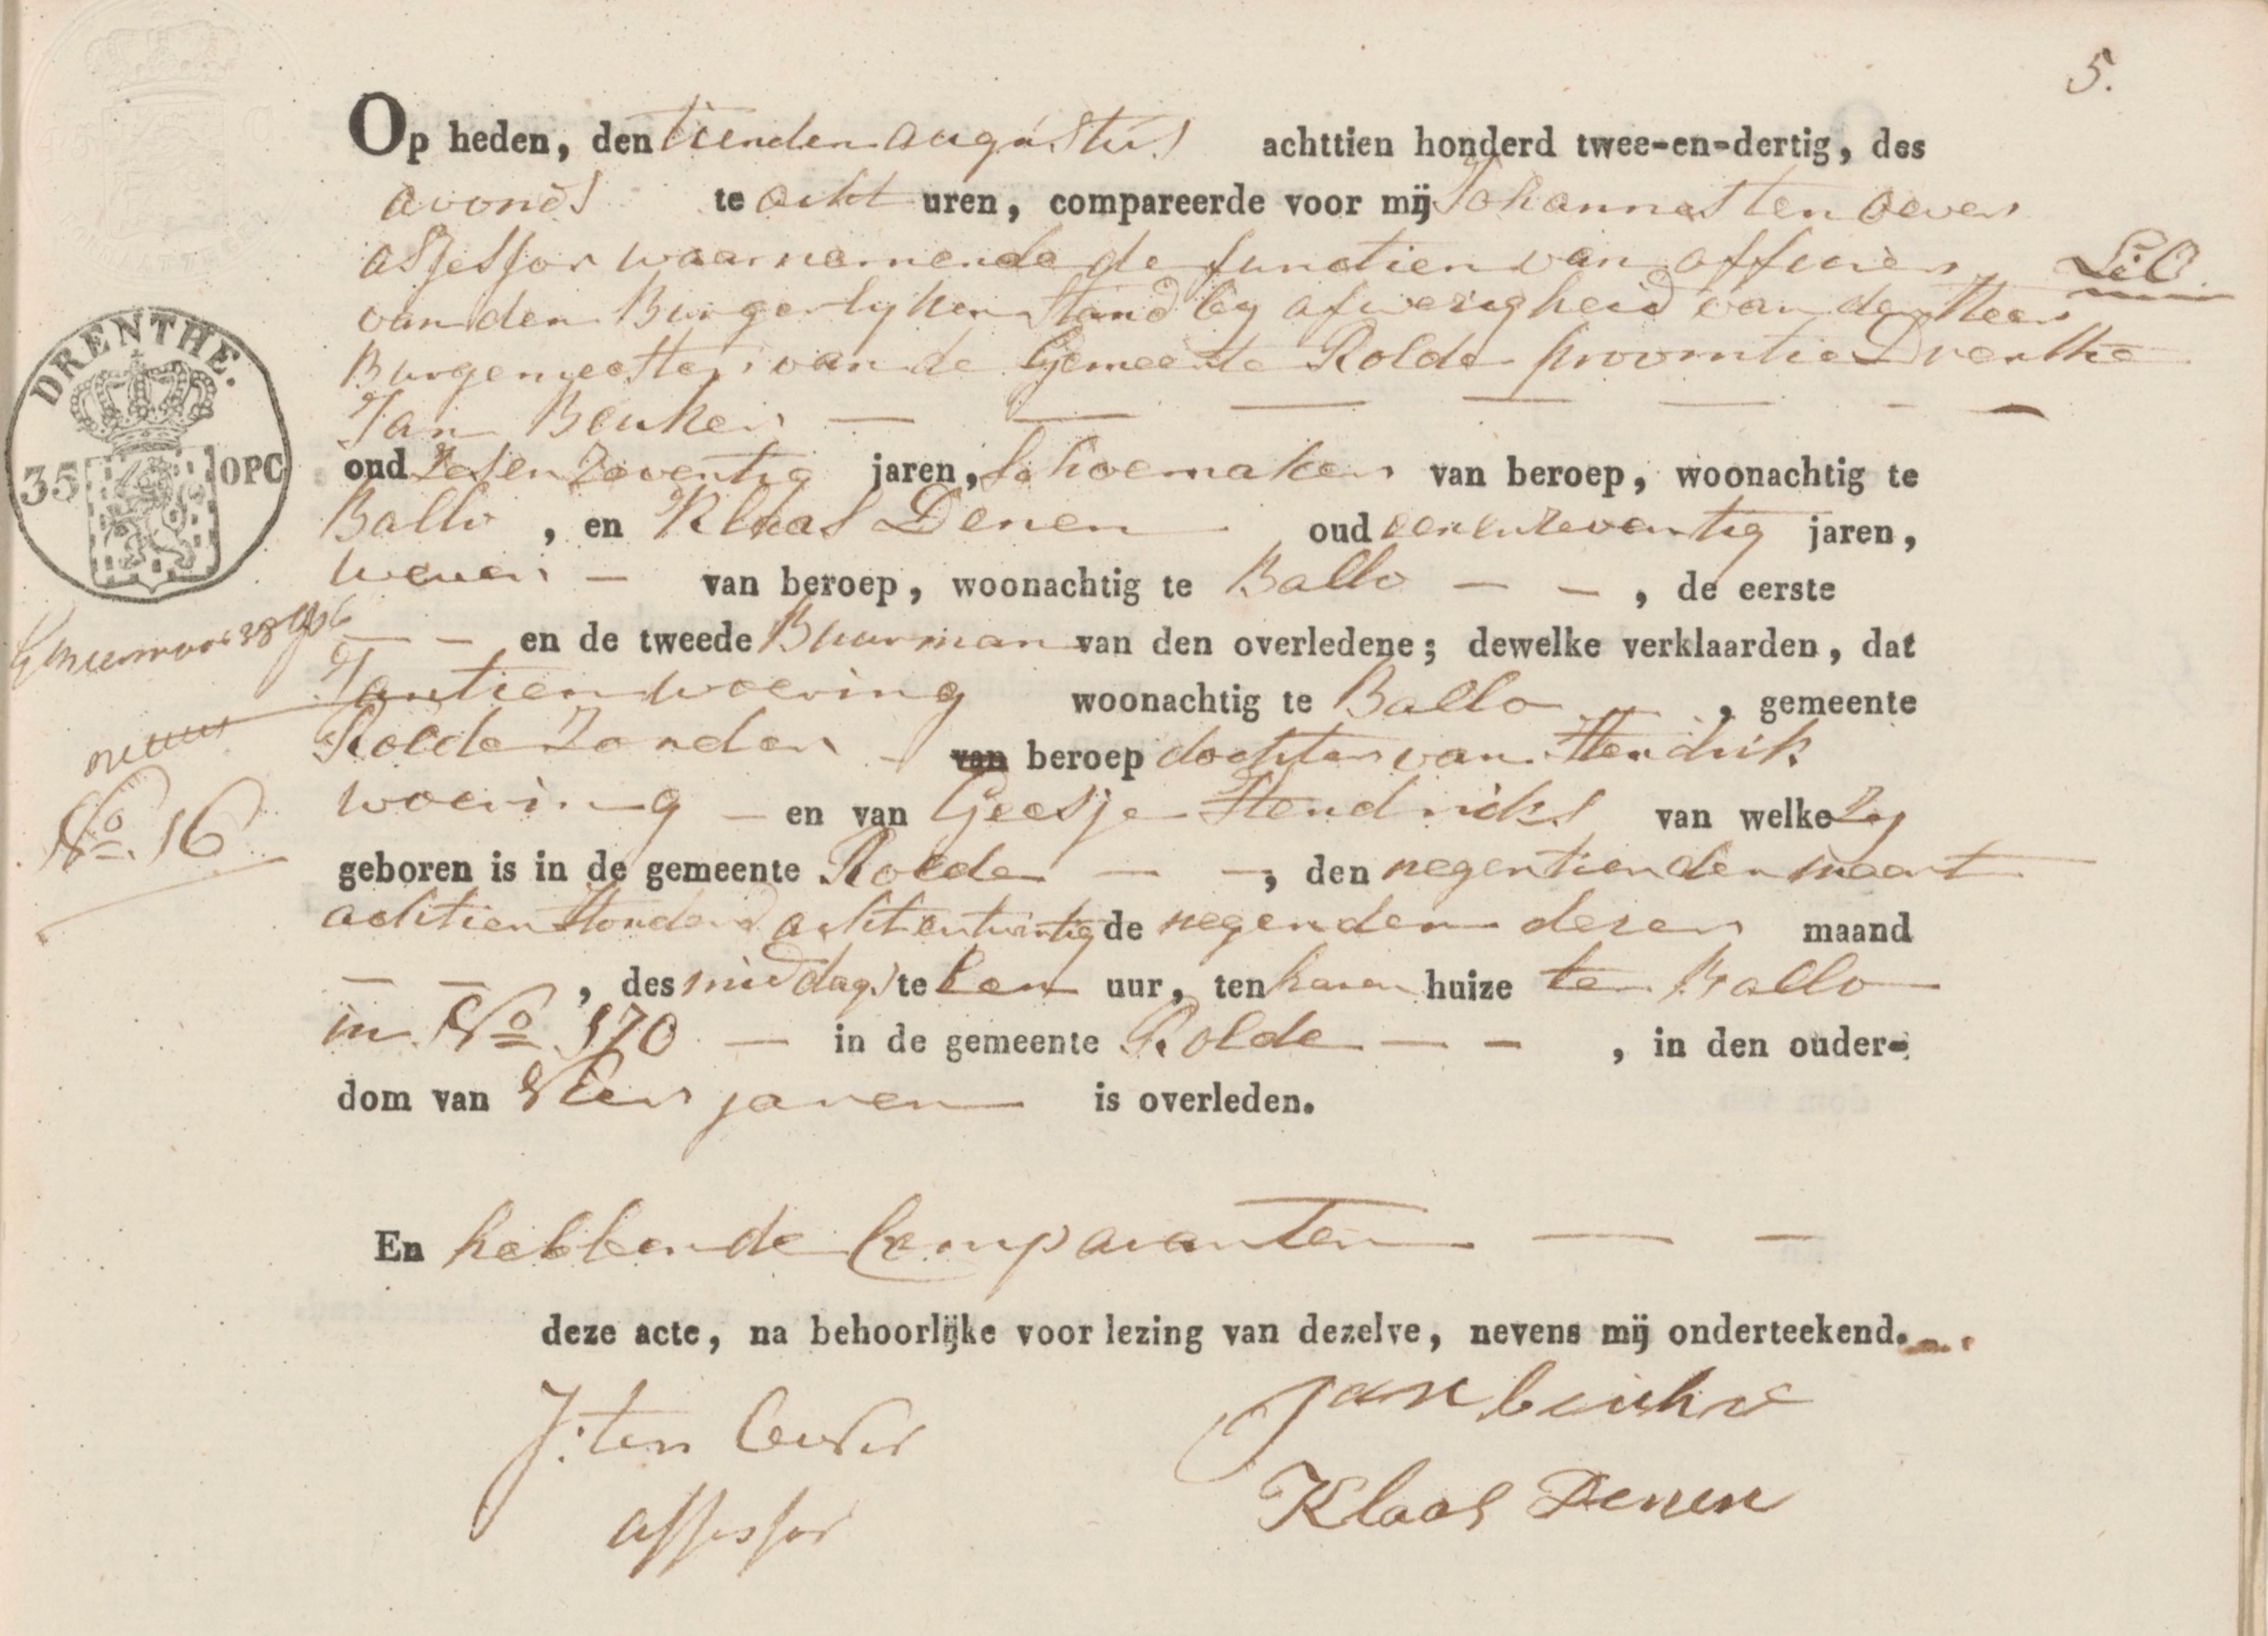 5.
Op heden, den tienden augustus achttien honderd twee-en-dertig, des
avonds te acht uren, compareerde voor mij Johannes ten oever
assessor waarnemende de functien van officier
van den Burgerlyken Stand by afwezigheid van den Heer
Burgemeester van de Gemeente Rolde provintie Drenthe
Jan Beuker
oud zesenzeventig jaren, Schoemaker van beroep, woonachtig te
Ballo, en Klaas Denen oud eenenzeventig jaren,
wever van beroep, woonachtig te Ballo, de eerste
en de tweede Buurman van den overledene; dewelke verklaarden, dat
Jantien woering woonachtig te Ballo, gemeente
Rolde zonder van beroep dochter van Hendrik
woering en van Geesje Hendriks van welke zy
geboren is in de gemeente Rolde, den negentienden maart
achtien Honderd achtentwintig de negenden dezer maand
, des middags te Een uur, ten haren huize te Ballo
in No. 170 in de gemeente Rolde, in den ouder-
dom van Vier jaren is overleden.
En hebben de Comparanten
deze acte, na behoorlijke voor lezing van dezelve, nevens mij onderteekend.
J: ten Oever
assessor
Jan beuker
Klaas Denen
DRENTHE.
35 OPC
No. 16